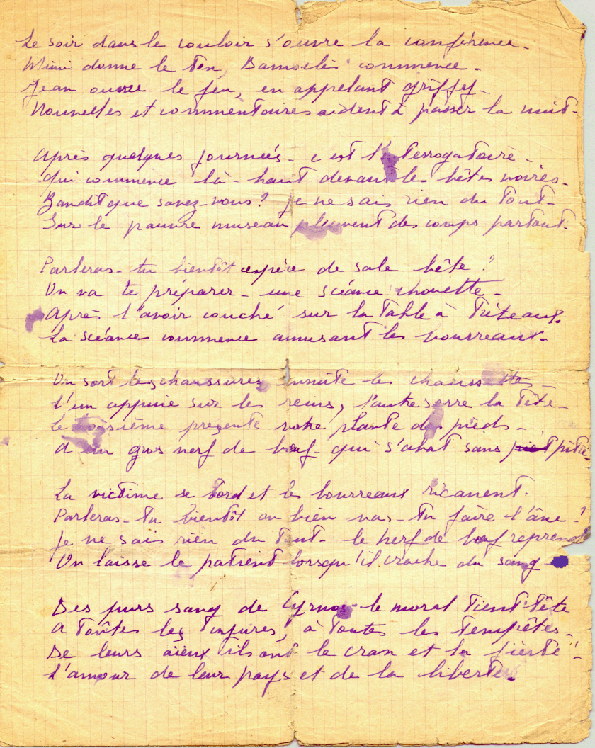 Le soir dans le couloir s'ouvre la conférence.
Mimi donne le ton, Bamoelé commence.
Jean ouvre le feu, en appelant griffet.
Nouvelles et commentaires aident à passer la nuit.
Après quelques journées - c'est l'interrogatoire.
Qui commence là-haut devant les bêtes noires.
Bandit que savez-vous? je ne sais rien du tout.
Sur le pauvre museau pleuvent des coups partout.
Parleras-tu bientôt espèce de sale bête?
On va te préparer - une scéance chouette.
Après l'avoir couché sur la table à tréteaux.
La scéance commence amusant les bourreaux.
On sort les chaussures ensuite les chaussettes
L'un appuie sur les reins, l'autre serre la tête.
Le troisième présente notre plante des pieds.
A un gros nerf de bœuf qui s'abat sans pitié
La victime se tord et les bourreaux ricanent.
Parleras-tu bientôt ou bien vas-tu faire l'âne?
Je ne sais rien du tout - le nerf de bœuf reprend
On laisse le patient lorsqu'il crache du sang
Des purs sang de Cyrnos le moral tient tête
A toutes les injures, à toutes les tempêtes.
De leurs aïeux ils ont le cran et la fierté
L'amour de leur pays et de la liberté